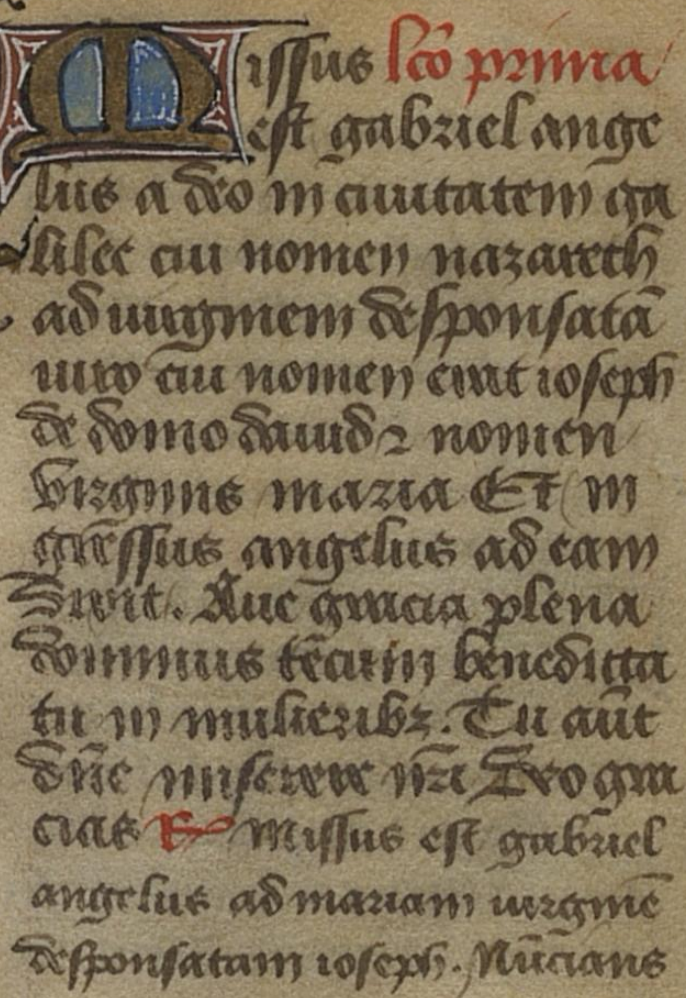 Missus lcõ prima
est gabriel ange
lus a deo in ciuitatem ga
lilee cui nomen nazareth
ad uirginem desponsatã
uiro cui nomen erat ioseph
de domo dauid ⁊ nomen
virginis maria Et in
gressus angelus ad eam
dixit. Aue gracia plena
dominus tecum benedicta
tu in mulieribꝫ. Tu aũt
dñe miserere nr̃i Deo gra
cias ℟ Missus est gabriel
angelus ad mariam uirginẽ
desponsatam ioseph. Nũcians